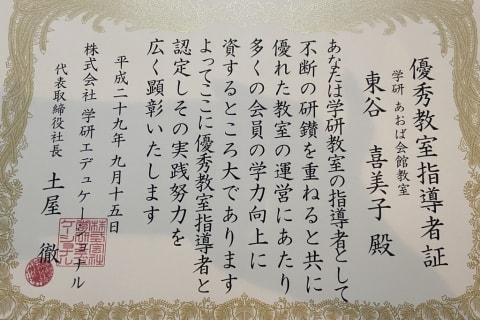 優秀教室指導者証
学研 あおば会館教室
東谷 喜美子 殿
あなたは学研教室の指導者として
不断の研鑽を重ねると共に
優れた教室の運営にあたり
多くの会員の学力向上に
資するところ大であります
よってここに優秀教室指導者と
認定しその実践努力を
広く顕彰いたします
平成二十九年 九月 十五日
株式会社 学研エデュケーショナル
代表取締役社長 土屋 徹